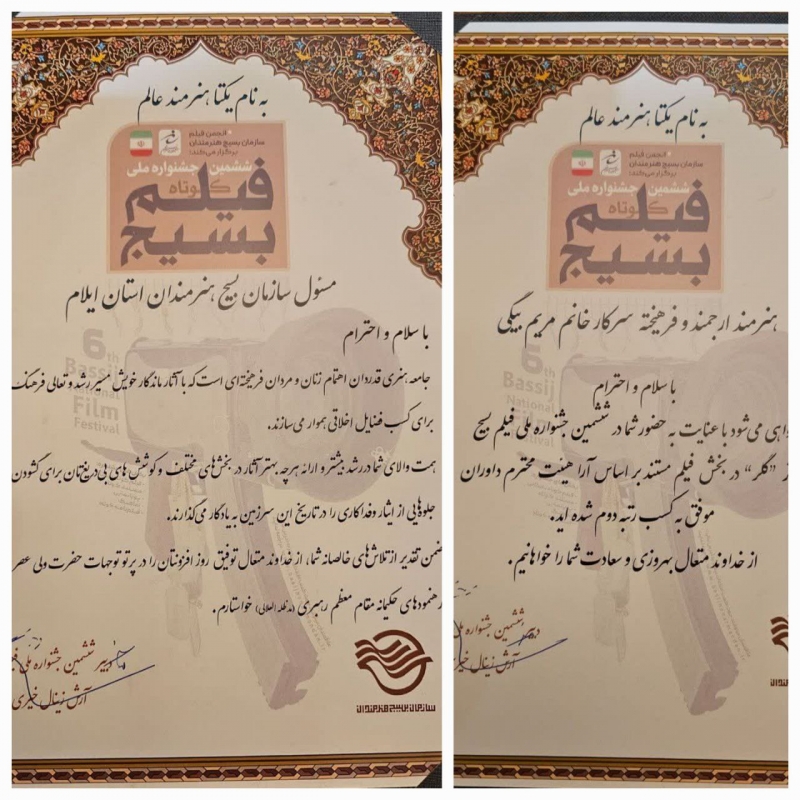 به نام یکتا هنرمند عالم
انجمن فیلم
سازمان بسیج هنرمندان
برگزار می‌کند:
ششمین جشنواره ملی
فیلم کوتاه
بسیج
مسئول سازمان بسیج هنرمندان استان ایلام
با سلام و احترام
جامعه هنری قدردان اهتمام زنان و مردان فرهیخته‌ای است که با آثار ماندگار خویش مسیر رشد و تعالی فرهنگ
برای کسب فضایل اخلاقی هموار می‌سازند.
همت والای شما در رشد بیشتر و ارائه هرچه بهتر آثار در بخش‌های مختلف و کوشش‌های بی‌دریغتان برای گشودن
جلوهایی از ایثار و فداکاری را در تاریخ این سرزمین به یادگار می‌گذارند.
ضمن تقدیر از تلاش‌های خالصانه شما، از خداوند متعال توفیق روز افزونتان را در پرتو توجهات حضرت ولی عصر
رهنمودهای حکیمانه مقام معظم رهبری (مدظله العالی) خواستارم.
دبیر ششمین جشنواره ملی
آرش زینال خیری
سازمان بسیج هنرمندان
6th
Bassij
National
Film
Festival
به نام یکتا هنرمند عالم
انجمن فیلم
سازمان بسیج هنرمندان
برگزار می‌کند:
ششمین جشنواره ملی
فیلم کوتاه
بسیج
هنرمند ارجمند و فرهیخته سرکار خانم مریم بیگی
با سلام و احترام
می‌شود با عنایت به حضور شما در ششمین جشنواره ملی فیلم بسیج
"گلر" در بخش فیلم مستند بر اساس آرا هیئت محترم داوران
موفق به کسب رتبه دوم شده اید.
از خداوند متعال بهروزی و سعادت شما را خواهانیم.
دبیر ششمین جشنواره ملی
آرش زینال
6th
Bassij
National